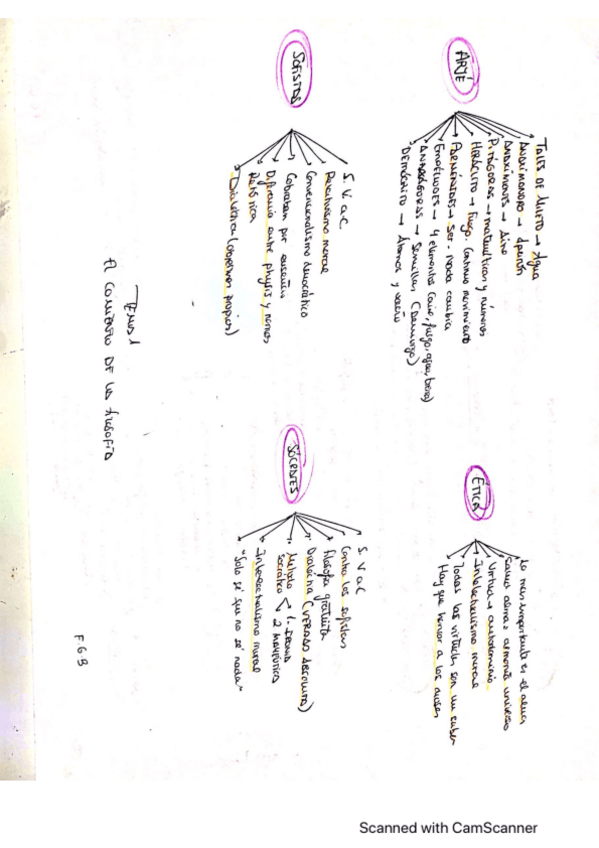 TEMA 1
El COMIENZO DE LA FILOSOFÍA
SOFISTAS
S. V a C
Relativismo moral
Convencionalismo democrático
Cobraban por enseñar
Diferencia entre physis y nomos
Retórica
Dialéctica (objetivos propios)
ARJÉ
TALES DE MILETO → Agua
ANAXIMANDRO → Apeirón
ANAXÍMENES → Aire
PITÁGORAS → matemáticas y números
HERÁCLITO → Fuego. Continuo movimiento
PARMÉNIDES → Ser - nada cambia
EMPÉDOCLES → 4 elementos (aire, fuego, agua, tierra)
ANAXÁGORAS → Semillas (Demiurgo)
DEMÓCRITO → Átomos y vacío
SÓCRATES
S. V a C
Contra los sofistas
Filosofía gratuita
Dialéctica (VERDAD ABSOLUTA)
Método socrático
1. IRONÍA
2 MAYÉUTICA
Intelectualismo moral
"Solo sé que no sé nada"
ÉTICA
Lo más importante es el alma
Sanar alma = armonía universo
Virtud → autodominio
Intelectualismo moral
Todas las virtudes son un saber
Hay que honrar a los dioses
F G B
Scanned with CamScanner